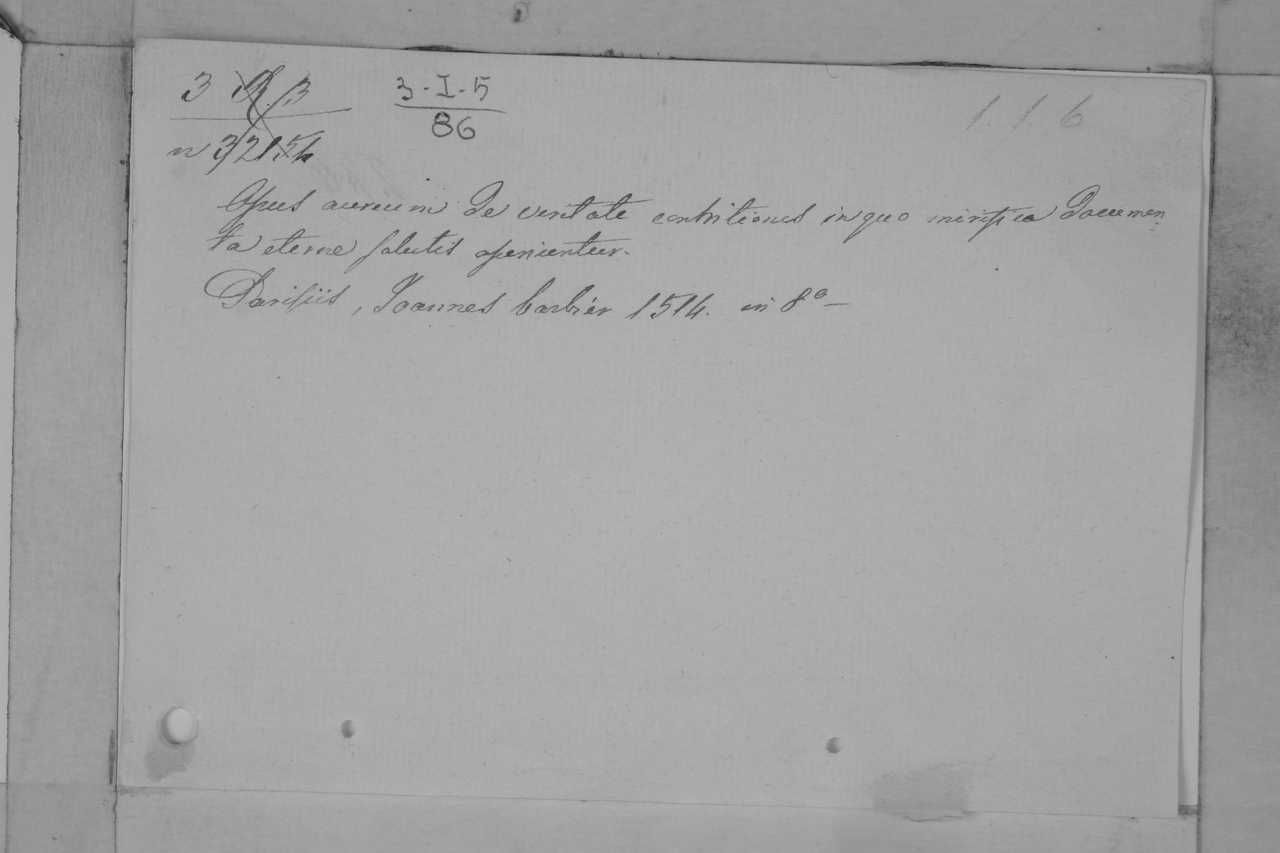 3 R. 3
3-I-5
1. 1. 6
86
n 32154
Opus aureum de veritate contritionis in quo mirifica documen
ta eterne salutis aperientur.
Parisiis, Joannes barbier 1514. in 8º